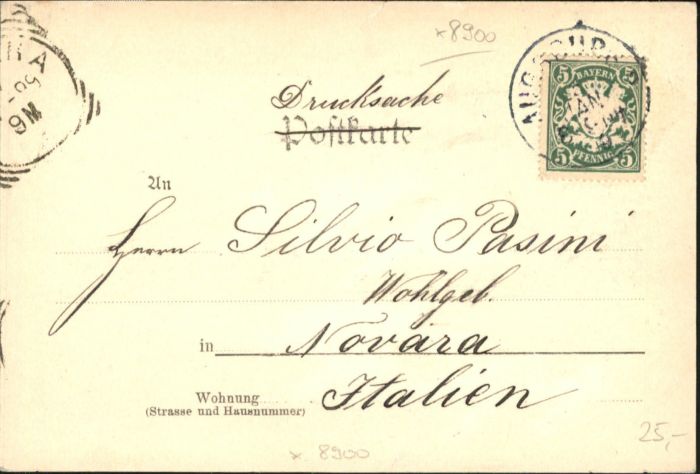 x 8900
AUGSBURG
5 BAYERN 5
5 PFENNIG 5
Drucksache
Postkarte
An
Herrn Silvio Pasini
Wohlgeb.
in Novara
Italien
Wohnung
(Strasse und Hausnummer)
25,-
x 8900